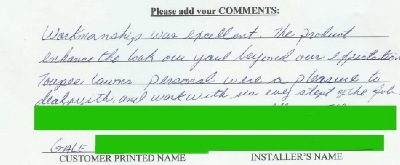 Please add your COMMENTS:
Workmanship was excellent. The product
enhances the look our yard beyond our expectation
lawns personal were a pleasure to
deal with and work with on every step of the job
GALE
CUSTOMER PRINTED NAME INSTALLER'S NAME